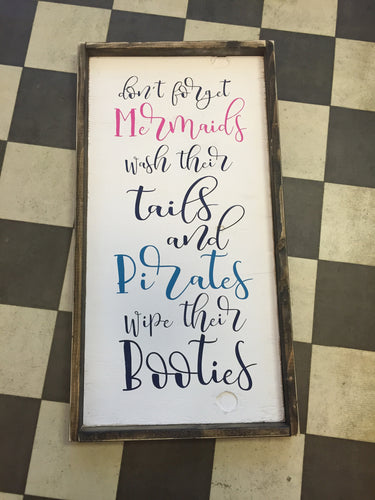 don't forget
Mermaids
wash their
tails
and
Pirates
wipe their
Booties